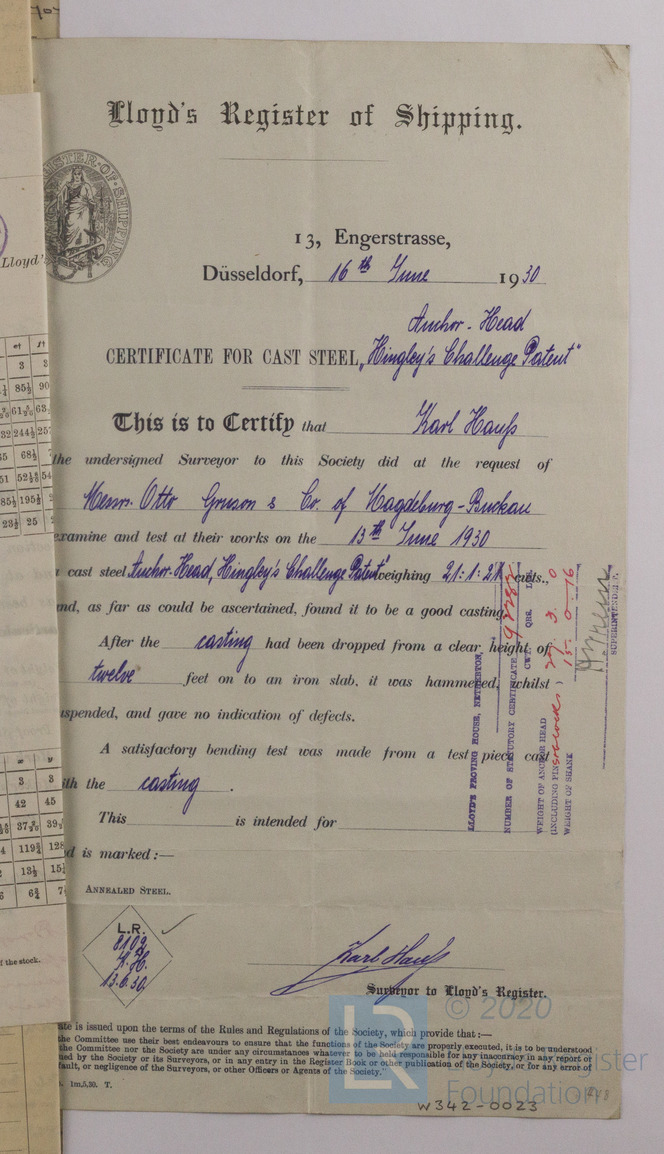 Lloyd's Register of Shipping.
REGISTER·OF·SHIPPING
13, Engerstrasse,
Düsseldorf, 16th June 1930
Anchor-Head
CERTIFICATE FOR CAST STEEL „Hingley's Challenge Patent"
This is to Certify that Karl Hauß
the undersigned Surveyor to this Society did at the request of
Messrs. Otto Gruson & Co. of Magdeburg-Buckau
examine and test at their works on the 13th June 1930
cast steel Anchor-Head, Hingley's Challenge Patent" weighing 21:1:21 cwts.,
and, as far as could be ascertained, found it to be a good casting.
After the casting had been dropped from a clear height of
twelve feet on to an iron slab, it was hammered, whilst
suspended, and gave no indication of defects.
A satisfactory bending test was made from a test piece cast
with the casting.
This is intended for
d is marked:—
ANNEALED STEEL.
L.R.
8102
K.H.
13.6.30.
Karl Hauß
Surveyor to Lloyd's Register.
ate is issued upon the terms of the Rules and Regulations of the Society, which provide that:—
the Committee use their best endeavours to ensure that the functions of the Society are properly executed, it is to be understood
the Committee nor the Society are under any circumstances whatever to be held responsible for any inaccuracy in any report or
ued by the Society or its Surveyors, or in any entry in the Register Book or other publication of the Society, or for any error of
fault, or negligence of the Surveyors, or other Officers or Agents of the Society."
1m,5,30. T.
LLOYD'S PROVING HOUSE, NETHERTON,
NUMBER OF STATUTORY CERTIFICATE
CWT. QRS.
WEIGHT OF ANCHOR HEAD
(INCLUDING PIN
WEIGHT OF SHANK 15. 0. 16
SUPERINTENDENT.
Lloyd's
f the stock.
LR
© 2020
Lloyd's Register
Foundation
W342-0023